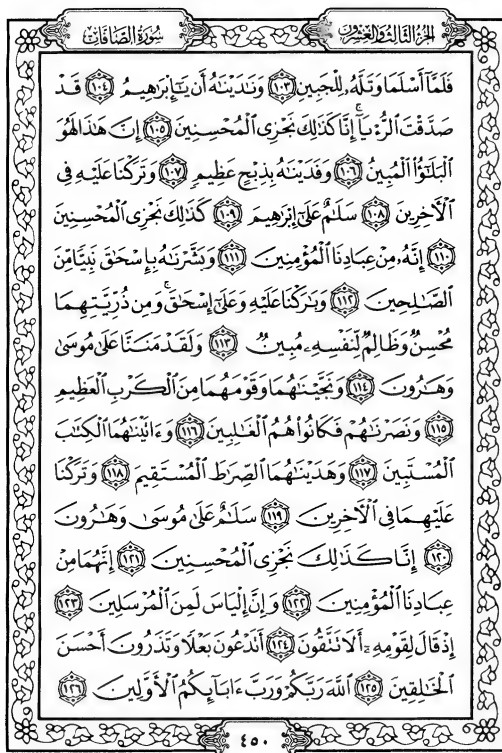 سُورَةُ الصَّافَّاتِ
الجُزْءُ الثَّالِثُ وَالعِشْرُونَ
فَلَمَّآ أَسْلَمَا وَتَلَّهُۥ لِلْجَبِينِ ١٠٣ وَنَٰدَيْنَٰهُ أَن يَٰٓإِبْرَٰهِيمُ ١٠٤ قَدْ
صَدَّقْتَ ٱلرُّءْيَآ ۚ إِنَّا كَذَٰلِكَ نَجْزِى ٱلْمُحْسِنِينَ ١٠٥ إِنَّ هَٰذَا لَهُوَ
ٱلْبَلَٰٓؤُا۟ ٱلْمُبِينُ ١٠٦ وَفَدَيْنَٰهُ بِذِبْحٍ عَظِيمٍ ١٠٧ وَتَرَكْنَا عَلَيْهِ فِى
ٱلْءَاخِرِينَ ١٠٨ سَلَٰمٌ عَلَىٰٓ إِبْرَٰهِيمَ ١٠٩ كَذَٰلِكَ نَجْزِى ٱلْمُحْسِنِينَ
١١٠ إِنَّهُۥ مِنْ عِبَادِنَا ٱلْمُؤْمِنِينَ ١١١ وَبَشَّرْنَٰهُ بِإِسْحَٰقَ نَبِيًّا مِّنَ
ٱلصَّٰلِحِينَ ١١٢ وَبَٰرَكْنَا عَلَيْهِ وَعَلَىٰٓ إِسْحَٰقَ ۚ وَمِن ذُرِّيَّتِهِمَا
مُحْسِنٌ وَظَالِمٌ لِّنَفْسِهِۦ مُبِينٌ ١١٣ وَلَقَدْ مَنَنَّا عَلَىٰ مُوسَىٰ
وَهَٰرُونَ ١١٤ وَنَجَّيْنَٰهُمَا وَقَوْمَهُمَا مِنَ ٱلْكَرْبِ ٱلْعَظِيمِ
١١٥ وَنَصَرْنَٰهُمْ فَكَانُوا۟ هُمُ ٱلْغَٰلِبِينَ ١١٦ وَءَاتَيْنَٰهُمَا ٱلْكِتَٰبَ
ٱلْمُسْتَبِينَ ١١٧ وَهَدَيْنَٰهُمَا ٱلصِّرَٰطَ ٱلْمُسْتَقِيمَ ١١٨ وَتَرَكْنَا
عَلَيْهِمَا فِى ٱلْءَاخِرِينَ ١١٩ سَلَٰمٌ عَلَىٰ مُوسَىٰ وَهَٰرُونَ
١٢٠ إِنَّا كَذَٰلِكَ نَجْزِى ٱلْمُحْسِنِينَ ١٢١ إِنَّهُمَا مِنْ
عِبَادِنَا ٱلْمُؤْمِنِينَ ١٢٢ وَإِنَّ إِلْيَاسَ لَمِنَ ٱلْمُرْسَلِينَ ١٢٣
إِذْ قَالَ لِقَوْمِهِۦٓ أَلَا تَتَّقُونَ ١٢٤ أَتَدْعُونَ بَعْلًا وَتَذَرُونَ أَحْسَنَ
ٱلْخَٰلِقِينَ ١٢٥ ٱللَّهَ رَبَّكُمْ وَرَبَّ ءَابَآئِكُمُ ٱلْأَوَّلِينَ ١٢٦
٤٥٠